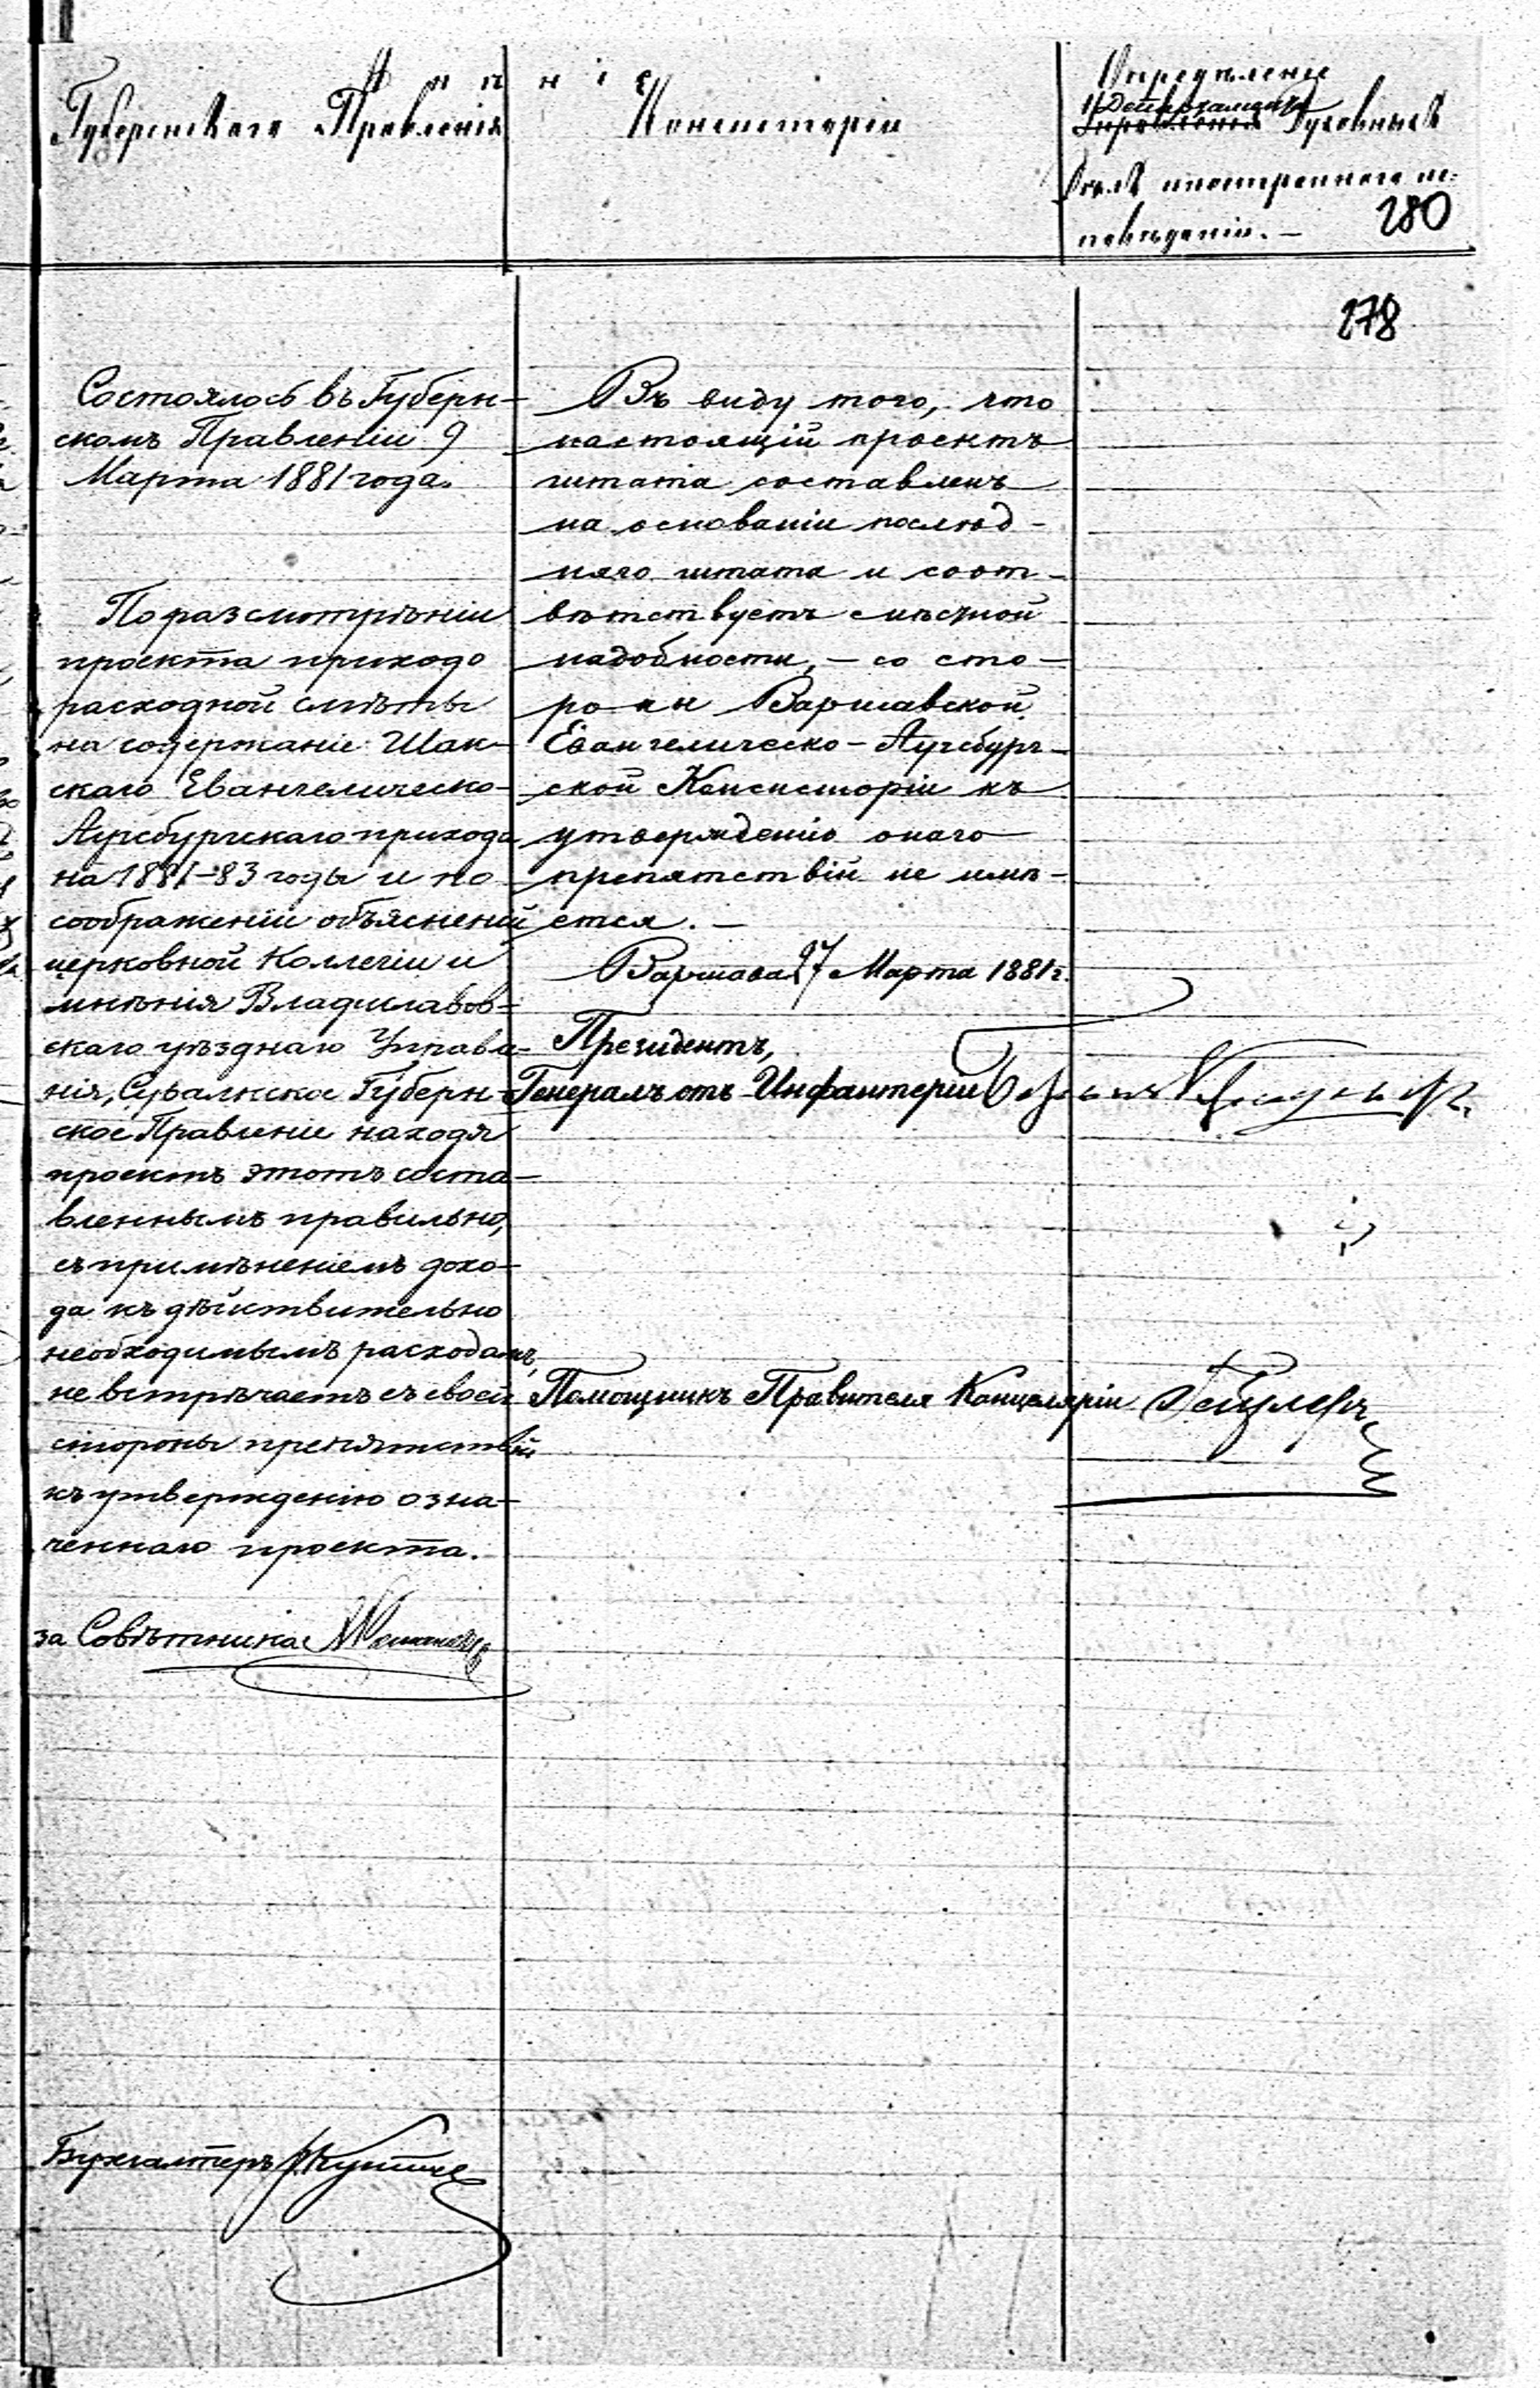 Мнѣніе
Губернскаго Правленія
Консисторіи
Опредѣленіе
Департамента
Управленія Духовныхъ
Дѣлъ иностраннаго ис-
повѣданія. —
280
278
Состоялось въ Губерн-
скомъ Правленіи 9
Марта 1881 года.
По разсмотрѣніи
проекта приходо
расходной смѣты
на содержаніе Шак-
скаго Евангелическо-
Аугсбургскаго прихода
на 1881-83 годы и по
соображеніи объясненій
церковной Коллегіи и
мнѣнія Владиславов-
скаго уѣзднаго Управле-
нія, Сувалкское Губерн-
ское Правленіе находя
проектъ этотъ соста-
вленнымъ правильно,
съ примѣненіемъ дохо-
да къ дѣйствительно
необходимымъ расходамъ,
не встрѣчаетъ съ своей
стороны препятствій
къ утвержденію озна-
ченнаго проекта.
за Совѣтника
Бухгалтеръ
Въ виду того, что
настоящій проектъ
штата составленъ
на основаніи послѣд-
няго штата и соот-
вѣтствуетъ мѣстной
надобности, — со сто-
роны Варшавской
Евангелическо-Аугсбург-
ской Консисторіи къ
утвержденію онаго
препятствій не имѣ-
ется. —
Варшава 27 Марта 1881 г.
Президентъ,
Генералъ отъ Инфантеріи
Помощникъ Правителя Канцеляріи